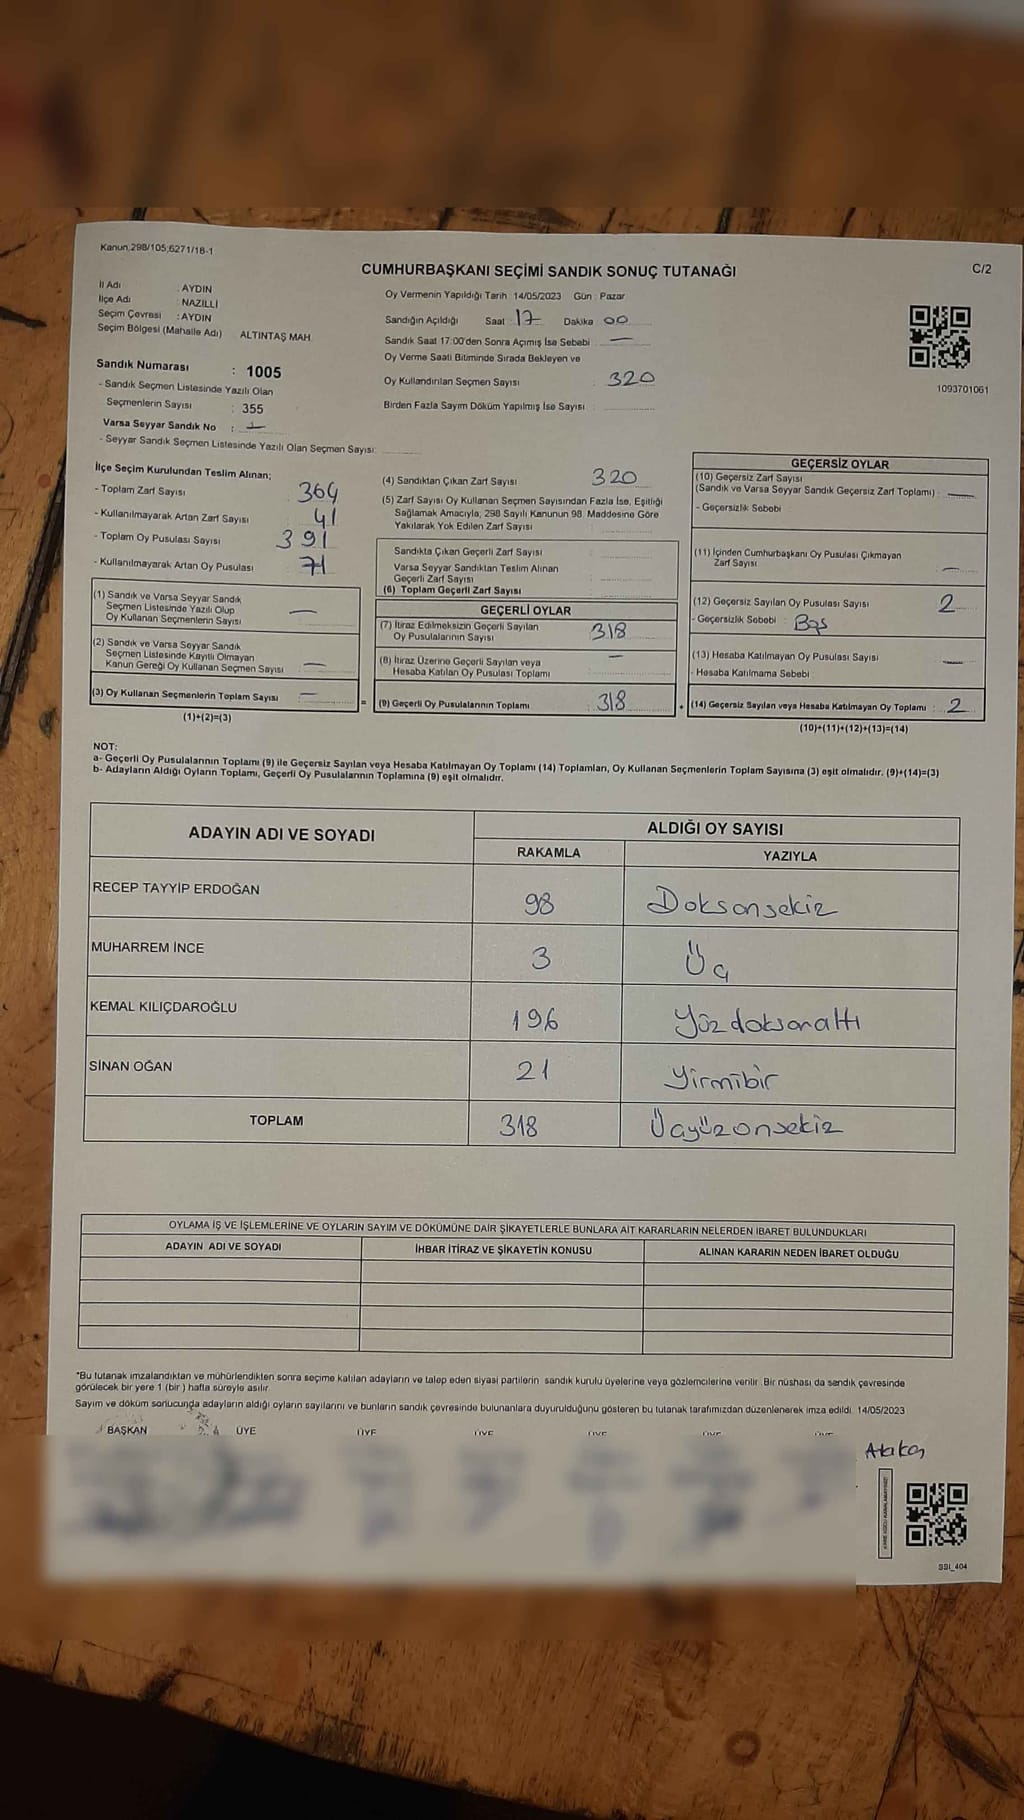 Kanun;298/105;6271/18-1
CUMHURBAŞKANI SEÇİMİ SANDIK SONUÇ TUTANAĞI
C/2
İl Adı : AYDIN
İlçe Adı : NAZİLLİ
Seçim Çevresi : AYDIN
Seçim Bölgesi (Mahalle Adı) ALTINTAŞ MAH.
Sandık Numarası : 1005
- Sandık Seçmen Listesinde Yazılı Olan
Seçmenlerin Sayısı : 355
Varsa Seyyar Sandık No :
- Seyyar Sandık Seçmen Listesinde Yazılı Olan Seçmen Sayısı:
Oy Vermenin Yapıldığı Tarih 14/05/2023 Gün : Pazar
Sandığın Açıldığı Saat : 17 Dakika 00
Sandık Saat 17:00'den Sonra Açımış İse Sebebi : —
Oy Verme Saati Bitiminde Sırada Bekleyen ve
Oy Kullandırılan Seçmen Sayısı : 320
Birden Fazla Sayım Döküm Yapılmış İse Sayısı :
1093701061
İlçe Seçim Kurulundan Teslim Alınan;
- Toplam Zarf Sayısı 364
- Kullanılmayarak Artan Zarf Sayısı 41
- Toplam Oy Pusulası Sayısı 391
- Kullanılmayarak Artan Oy Pusulası 71
(1) Sandık ve Varsa Seyyar Sandık
Seçmen Listesinde Yazılı Olup
Oy Kullanan Seçmenlerin Sayısı —
(2) Sandık ve Varsa Seyyar Sandık
Seçmen Listesinde Kayıtlı Olmayan
Kanun Gereği Oy Kullanan Seçmen Sayısı —
(3) Oy Kullanan Seçmenlerin Toplam Sayısı —
(1)+(2)=(3)
(4) Sandıktan Çıkan Zarf Sayısı 320
(5) Zarf Sayısı Oy Kullanan Seçmen Sayısından Fazla İse, Eşitliği
Sağlamak Amacıyla, 298 Sayılı Kanunun 98. Maddesine Göre
Yakılarak Yok Edilen Zarf Sayısı :
Sandıkta Çıkan Geçerli Zarf Sayısı
Varsa Seyyar Sandıktan Teslim Alınan
Geçerli Zarf Sayısı
(6) Toplam Geçerli Zarf Sayısı
GEÇERLİ OYLAR
(7) İtiraz Edilmeksizin Geçerli Sayılan
Oy Pusulalarının Sayısı 318
(8) İtiraz Üzerine Geçerli Sayılan veya
Hesaba Katılan Oy Pusulası Toplamı —
= (9) Geçerli Oy Pusulalarının Toplamı : 318 +
GEÇERSİZ OYLAR
(10) Geçersiz Zarf Sayısı
(Sandık ve Varsa Seyyar Sandık Geçersiz Zarf Toplamı) : —
- Geçersizlik Sebebi :
(11) İçinden Cumhurbaşkanı Oy Pusulası Çıkmayan
Zarf Sayısı —
(12) Geçersiz Sayılan Oy Pusulası Sayısı 2
- Geçersizlik Sebebi : Boş
(13) Hesaba Katılmayan Oy Pusulası Sayısı —
- Hesaba Katılmama Sebebi :
(14) Geçersiz Sayılan veya Hesaba Katılmayan Oy Toplamı : 2
(10)+(11)+(12)+(13)=(14)
NOT:
a- Geçerli Oy Pusulalarının Toplamı (9) ile Geçersiz Sayılan veya Hesaba Katılmayan Oy Toplamı (14) Toplamları, Oy Kullanan Seçmenlerin Toplam Sayısına (3) eşit olmalıdır. (9)+(14)=(3)
b- Adayların Aldığı Oyların Toplamı, Geçerli Oy Pusulalarının Toplamına (9) eşit olmalıdır.
ADAYIN ADI VE SOYADI
ALDIĞI OY SAYISI
RAKAMLA YAZIYLA
RECEP TAYYİP ERDOĞAN 98 Doksansekiz
MUHARREM İNCE 3 Üç
KEMAL KILIÇDAROĞLU 196 Yüzdoksanaltı
SİNAN OĞAN 21 Yirmibir
TOPLAM 318 Üçyüzonsekiz
OYLAMA İŞ VE İŞLEMLERİNE VE OYLARIN SAYIM VE DÖKÜMÜNE DAİR ŞİKAYETLERLE BUNLARA AİT KARARLARIN NELERDEN İBARET BULUNDUKLARI
ADAYIN ADI VE SOYADI İHBAR İTİRAZ VE ŞİKAYETİN KONUSU ALINAN KARARIN NEDEN İBARET OLDUĞU
*Bu tutanak imzalandıktan ve mühürlendikten sonra seçime katılan adayların ve talep eden siyasi partilerin sandık kurulu üyelerine veya gözlemcilerine verilir. Bir nüshası da sandık çevresinde
görülecek bir yere 1 (bir) hafta süreyle asılır.
Sayım ve döküm sonucunda adayların aldığı oyların sayılarını ve bunların sandık çevresinde bulunanlara duyurulduğunu gösteren bu tutanak tarafımızdan düzenlenerek imza edildi. 14/05/2023
BAŞKAN ÜYE ÜYE ÜYE ÜYE ÜYE ÜYE
SSI_404